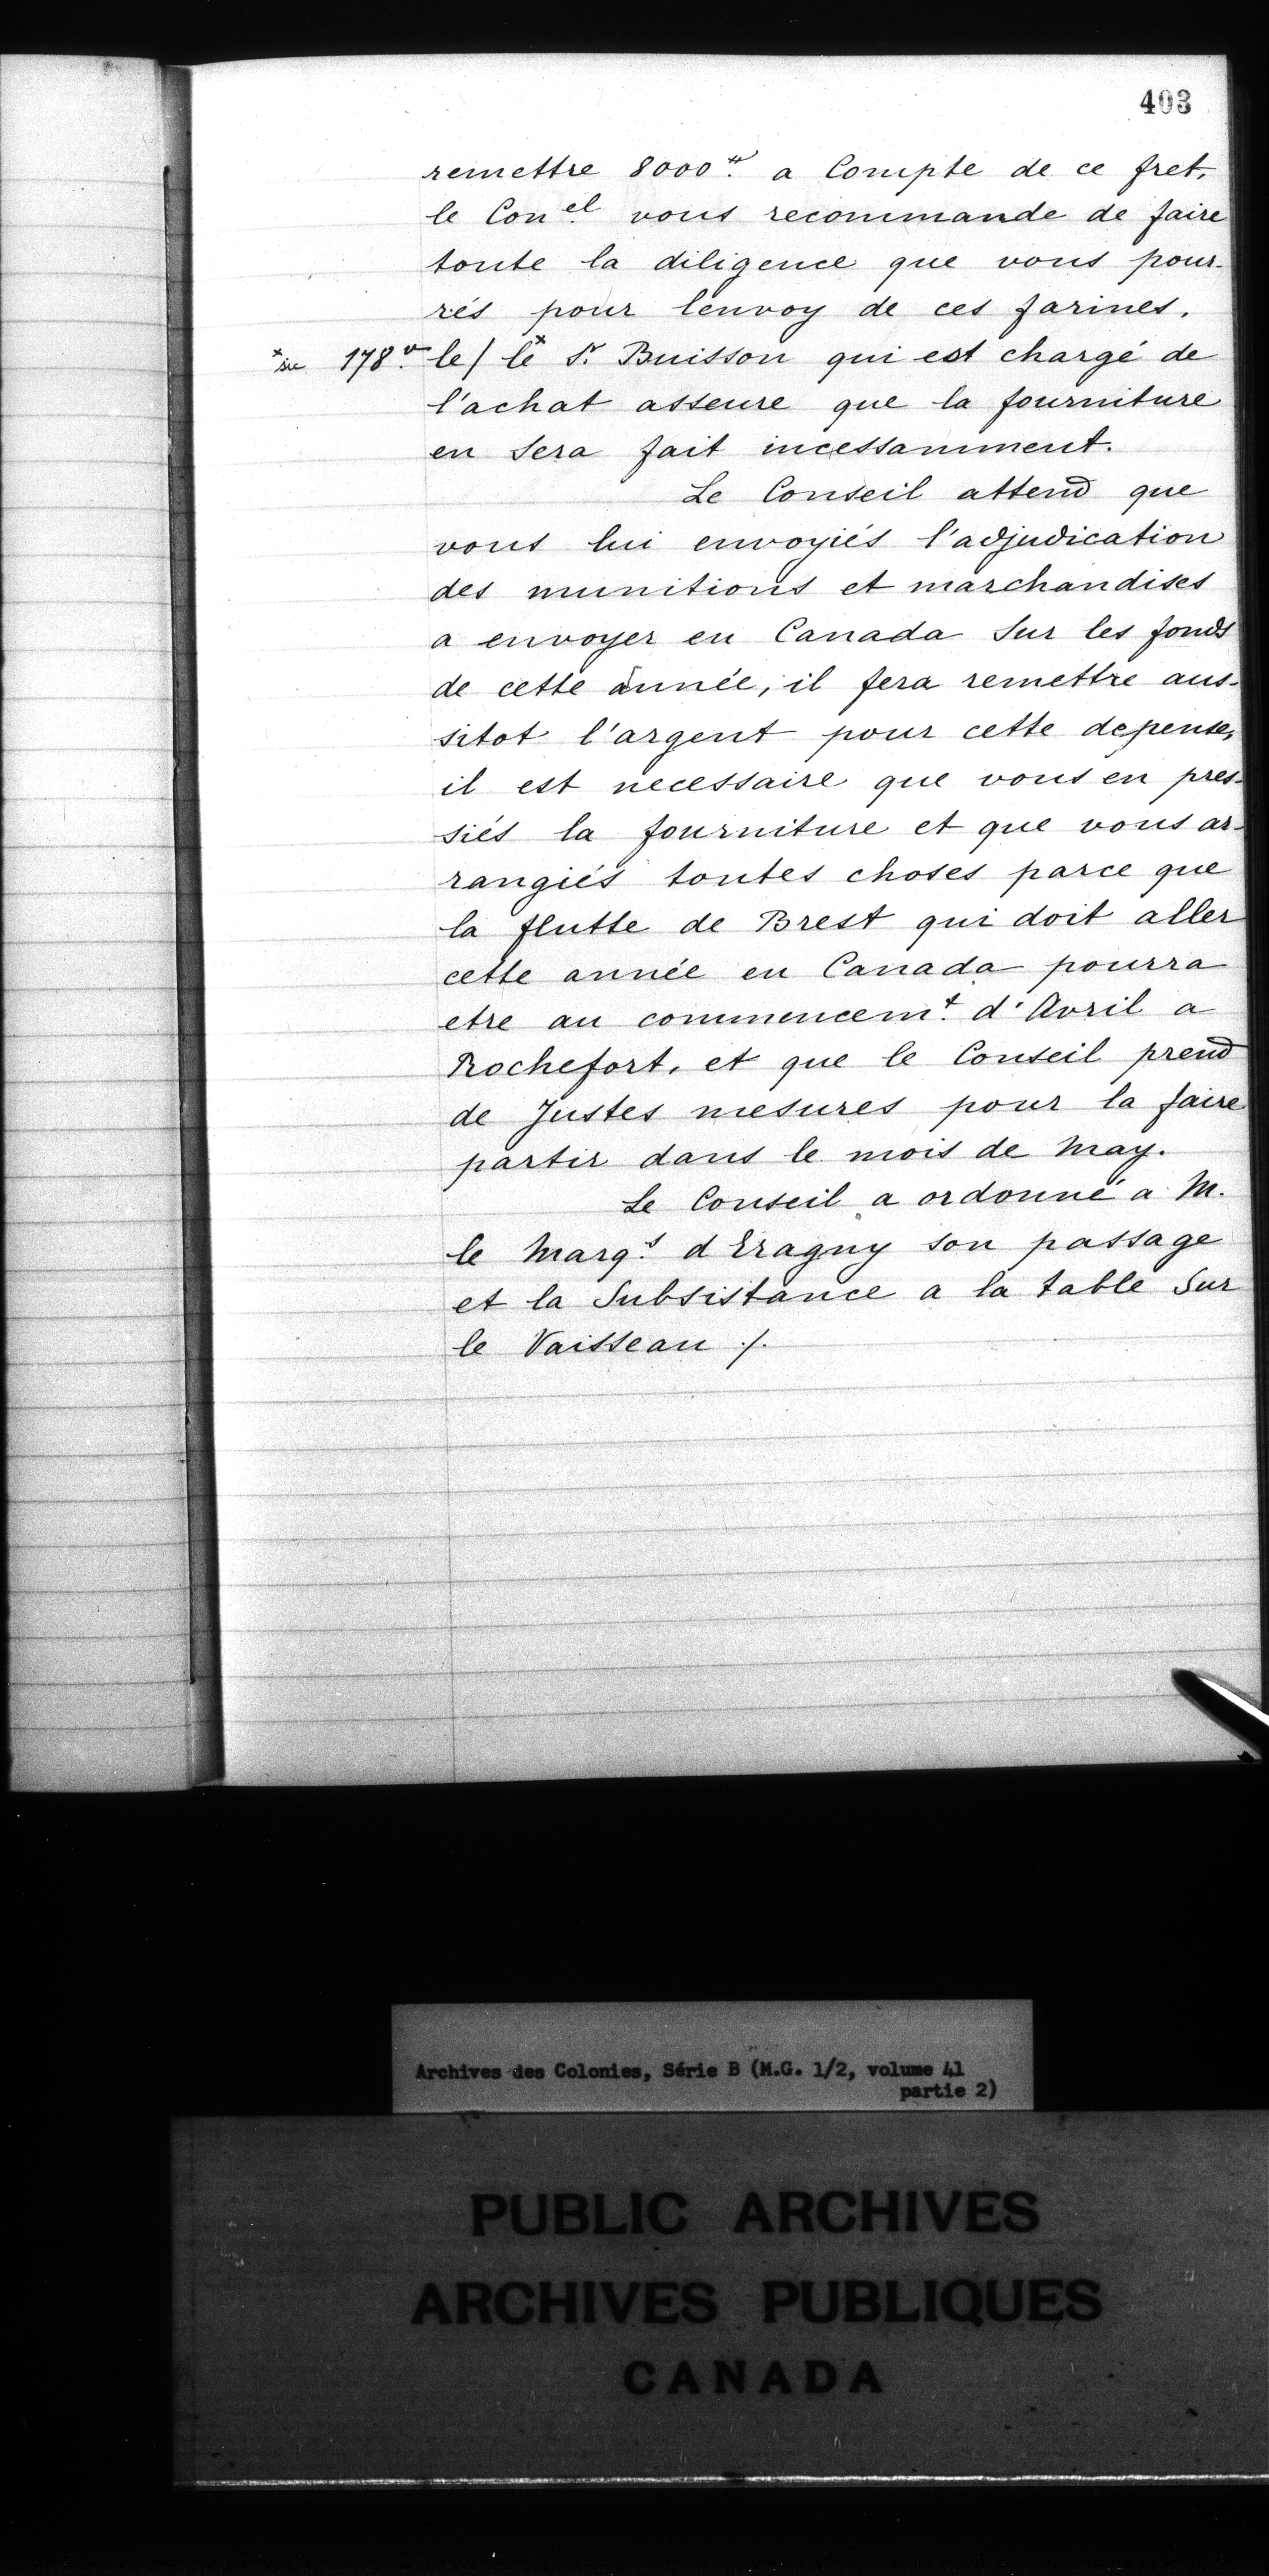 403
remettre 8000ᵗᵗ. a Compte de ce fret,
le Con.el vous recommande de faire
toute la diligence que vous pour-
rés pour lenvoy de ces farines.
*sic 178.v le/ le* Sr. Buisson qui est chargé de
l'achat asseure que la fourniture
en sera fait incessamment.
Le Conseil attend que
vous lui envoyiés l'adjudication
des munitions et marchandises
a envoyer en Canada sur les fonds
de cette année, il fera remettre aus-
sitot l'argent pour cette depense,
il est necessaire que vous en pres-
siés la fourniture et que vous ar-
rangiés toutes choses parce que
la flutte de Brest qui doit aller
cette année en Canada pourra
etre au commencem.t d'Avril a
Rochefort, et que le Conseil prend
de Justes mesures pour la faire
partir dans le mois de May.
Le Conseil a ordonné a M.
le Marq.s d Eragny son passage
et la Subsistance a la table sur
le Vaisseau ./.
Archives des Colonies, Série B (M.G. 1/2, volume 41
partie 2)
PUBLIC ARCHIVES
ARCHIVES PUBLIQUES
CANADA